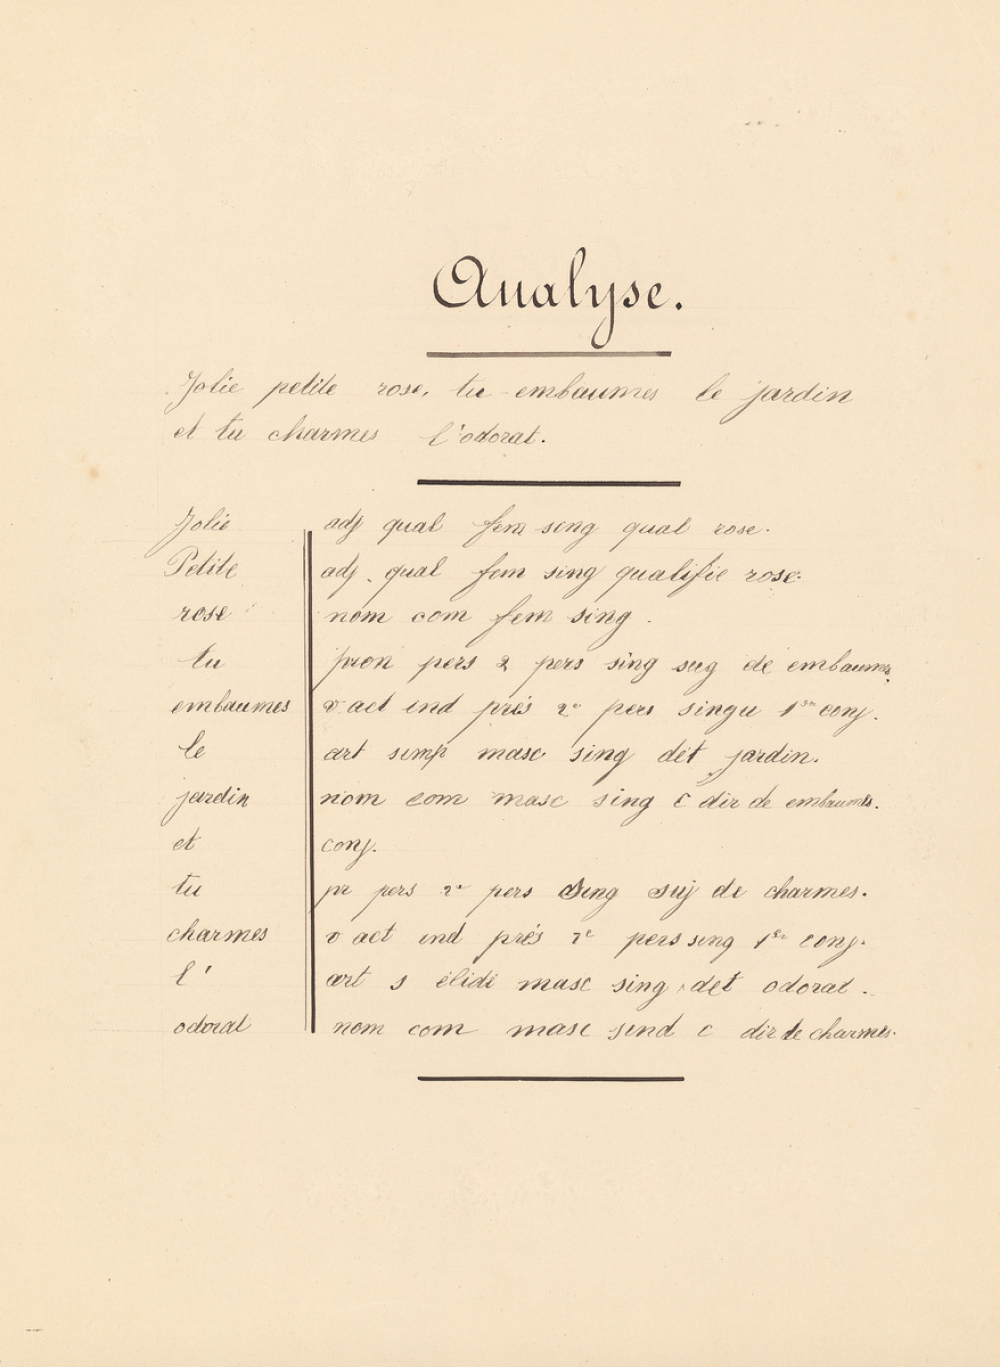 Analyse.
Jolie petite rose, tu embaumes le jardin
et tu charmes l'odorat.
Jolie adj qual fem sing qual rose.
Petite adj. qual fem sing qualifie rose.
rose nom com fem sing.
tu pron pers 2 pers sing sug de embaumes.
embaumes v act ind prés 2e pers singu 1ere conj.
le art simp masc sing dét jardin.
jardin nom com masc sing c dir de embaumes.
et conj.
tu pr pers 2e pers Sing suj de charmes.
charmes v act ind prés 2e pers sing 1ere conj.
l' art s élidé masc sing dét odorat.
odorat nom com masc sind c dir de charmes.